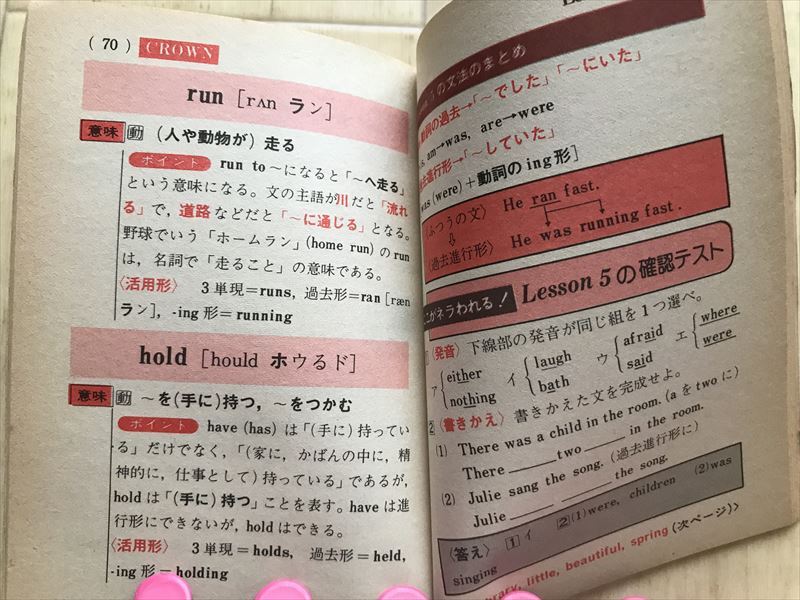 ( 70 ) CROWN
run [rʌn ラン]
意味 動 (人や動物が) 走る
ポイント run to ~になると「~へ走る」
という意味になる。文の主語が川だと「流れ
る」で，道路などだと「~に通じる」となる。
野球でいう「ホームラン」(home run) の run
は，名詞で「走ること」の意味である。
〈活用形〉 3単現＝runs, 過去形＝ran [ræn
ラン], -ing 形＝running
hold [hould ホウるド]
意味 動 ~を(手に)持つ，~をつかむ
ポイント have (has) は「(手に) 持ってい
る」だけでなく，「(家に，かばんの中に，精
神的に，仕事として) 持っている」であるが，
hold は「(手に) 持つ」ことを表す。have は進
行形にできないが，hold はできる。
〈活用形〉 3単現＝holds, 過去形＝held,
-ing 形＝holding
の文法のまとめ
動詞の過去→「~でした」「~にいた」
am→was, are→were
過去進行形→「~していた」
was (were)＋動詞の ing 形]
〈ふつうの文〉 He ran fast.
⇩
〈過去進行形〉 He was running fast.
ここがネラわれる! Lesson 5 の確認テスト
1 〈発音〉下線部の発音が同じ組を1つ選べ。
ア either nothing イ laugh bath ウ afraid said エ where were
2 〈書きかえ〉書きかえた文を完成せよ。
(1) There was a child in the room. (a を two に)
There ＿＿ two ＿＿ in the room.
(2) Julie sang the song. (過去進行形に)
Julie ＿＿ ＿＿ the song.
〈答え〉 1 イ 2 (1) were, children (2) was
singing
little, beautiful, spring (次ページ)〉